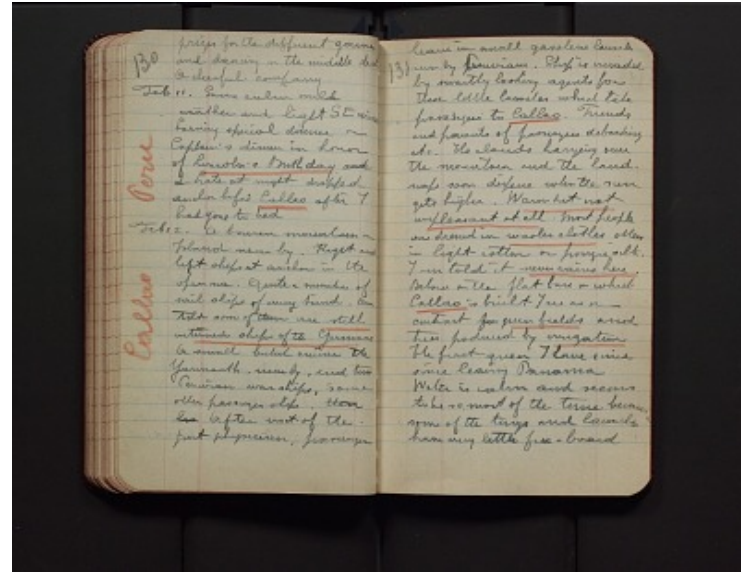 130
prizes for the different games
and dancing in the middle deck
A cheerful company
Feb 11. Same calm mild
weather and light SE wind
having special dinner or
Captain's dinner in honor
of Lincoln's Birthday and
late at night dropped
anchor before Callao after I
had gone to bed
Peru
Feb 12. brown mountains
Island near by. Right and
left ships at anchor in the
open sea. Quite a number of
sail ships of every kind. Am
told some of them are still
interned ships of the Germans
A small British cruiser the
Yarmouth nearby, and two
Peruvian warships, some
other passenger ships.
After visit of the
port physician, passengers
Callao
131
leave in small gasolene launch
run by Peruvians. Ship is invaded
by smartly looking agents for
these little launches which take
passengers to Callao. Friends
and parents of passengers debarking
etc. The clouds hanging over
the mountain and the land
soon disperse when the sun
gets higher. Warm but not
unpleasant at all. Most people
are dressed in woolen clothes others
in light cotton or pongee silk.
I'm told it never rains here
Below on the flat base on which
Callao is built I see as a
contrast few green fields and
trees produced by irrigation
the first green I have seen
since leaving Panama
Water is calm and seems
to be so most of the time because
some of the tugs and launches
have very little free-board